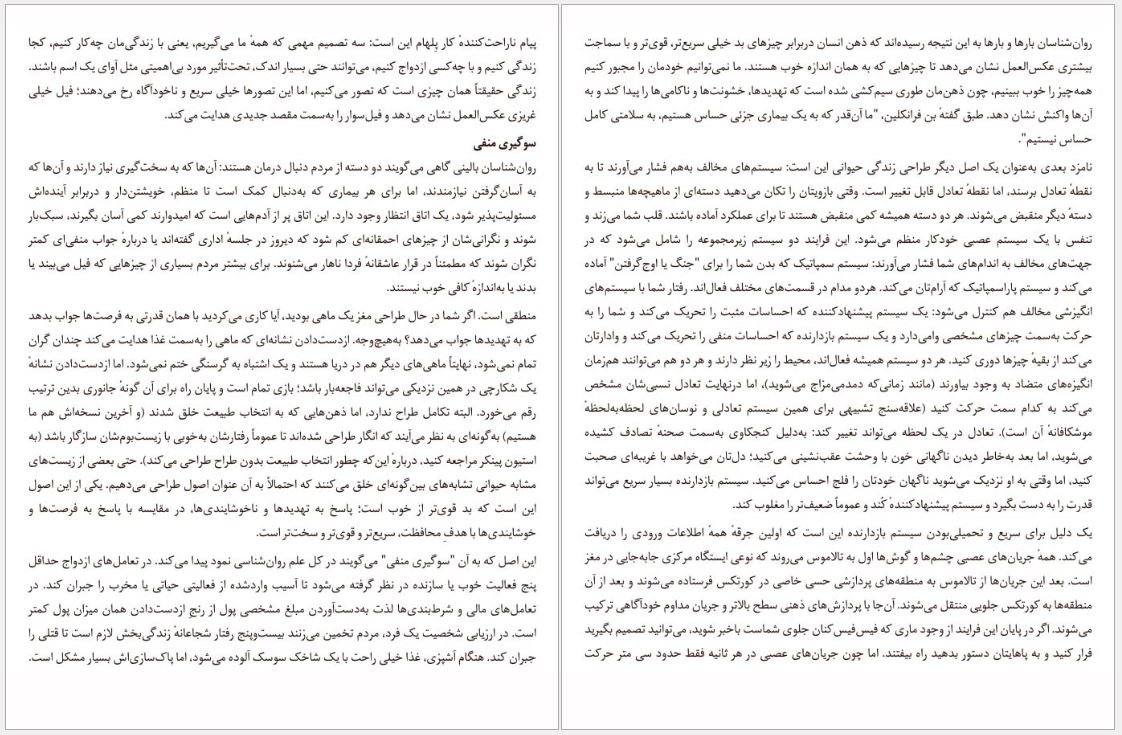 پیام ناراحت‌کنندهٔ کار پلهام این است: سه تصمیم مهمی که همهٔ ما می‌گیریم، یعنی با زندگی‌مان چه‌کار کنیم، کجا
زندگی کنیم و با چه‌کسی ازدواج کنیم، می‌توانند حتی بسیار اندک، تحت‌تأثیر مورد بی‌اهمیتی مثل آوای یک اسم باشند.
زندگی حقیقتاً همان چیزی است که تصور می‌کنیم، اما این تصورها خیلی سریع و ناخودآگاه رخ می‌دهند؛ فیل خیلی
غریزی عکس‌العمل نشان می‌دهد و فیل‌سوار را به‌سمت مقصد جدیدی هدایت می‌کند.
سوگیری منفی
روان‌شناسان بالینی گاهی می‌گویند دو دسته از مردم دنبال درمان هستند: آن‌ها که به سخت‌گیری نیاز دارند و آن‌ها که
به آسان‌گرفتن نیازمندند، اما برای هر بیماری که به‌دنبال کمک است تا منظم، خویشتن‌دار و دربرابر آینده‌اش
مسئولیت‌پذیر شود، یک اتاق انتظار وجود دارد. این اتاق پر از آدم‌هایی است که امیدوارند کمی آسان بگیرند، سبک‌بار
شوند و نگرانی‌شان از چیزهای احمقانه‌ای کم شود که دیروز در جلسهٔ اداری گفته‌اند یا دربارهٔ جواب منفی‌ای کمتر
نگران شوند که مطمئناً در قرار عاشقانهٔ فردا ناهار می‌شنوند. برای بیشتر مردم بسیاری از چیزهایی که فیل می‌بیند یا
بدند یا به‌اندازهٔ کافی خوب نیستند.
منطقی است. اگر شما در حال طراحی مغز یک ماهی بودید، آیا کاری می‌کردید با همان قدرتی به فرصت‌ها جواب بدهد
که به تهدیدها جواب می‌دهد؟ به‌هیچ‌وجه. ازدست‌دادن نشانه‌ای که ماهی را به‌سمت غذا هدایت می‌کند چندان گران
تمام نمی‌شود، نهایتاً ماهی‌های دیگر هم در دریا هستند و یک اشتباه به گرسنگی ختم نمی‌شود. اما ازدست‌دادن نشانهٔ
یک شکارچی در همین نزدیکی می‌تواند فاجعه‌بار باشد؛ بازی تمام است و پایان راه برای آن گونهٔ جانوری بدین ترتیب
رقم می‌خورد. البته تکامل طراح ندارد، اما ذهن‌هایی که به انتخاب طبیعت خلق شدند (و آخرین نسخه‌اش هم ما
هستیم) به‌گونه‌ای به نظر می‌آیند که انگار طراحی شده‌اند تا عموماً رفتارشان به‌خوبی با زیست‌بوم‌شان سازگار باشد (به
استیون پینکر مراجعه کنید، دربارهٔ این‌که چطور انتخاب طبیعت بدون طراح طراحی می‌کند). حتی بعضی از زیست‌های
مشابه حیوانی تشابه‌های بین‌گونه‌ای خلق می‌کنند که احتمالاً به آن عنوان اصول طراحی می‌دهیم. یکی از این اصول
این است که بد قوی‌تر از خوب است؛ پاسخ به تهدیدها و ناخوشایندی‌ها، در مقایسه با پاسخ به فرصت‌ها و
خوشایندی‌ها با هدفِ محافظت، سریع‌تر و قوی‌تر و سخت‌تر است.
این اصل که به آن "سوگیری منفی" می‌گویند در کل علم روان‌شناسی نمود پیدا می‌کند. در تعامل‌های ازدواج حداقل
پنج فعالیت خوب یا سازنده در نظر گرفته می‌شود تا آسیب واردشده از فعالیتی حیاتی یا مخرب را جبران کند. در
تعامل‌های مالی و شرط‌بندی‌ها لذت به‌دست‌آوردن مبلغ مشخصی پول از رنجِ ازدست‌دادن همان میزان پول کمتر
است. در ارزیابی شخصیت یک فرد، مردم تخمین می‌زنند بیست‌وپنج رفتار شجاعانهٔ زندگی‌بخش لازم است تا قتلی را
جبران کند. هنگام آشپزی، غذا خیلی راحت با یک شاخک سوسک آلوده می‌شود، اما پاک‌سازی‌اش بسیار مشکل است.
روان‌شناسان بارها و بارها به این نتیجه رسیده‌اند که ذهن انسان دربرابر چیزهای بد خیلی سریع‌تر، قوی‌تر و با سماجت
بیشتری عکس‌العمل نشان می‌دهد تا چیزهایی که به همان اندازه خوب هستند. ما نمی‌توانیم خودمان را مجبور کنیم
همه‌چیز را خوب ببینیم، چون ذهن‌مان طوری سیم‌کشی شده است که تهدیدها، خشونت‌ها و ناکامی‌ها را پیدا کند و به
آن‌ها واکنش نشان دهد. طبق گفتهٔ بن فرانکلین، "ما آن‌قدر که به یک بیماری جزئی حساس هستیم، به سلامتی کامل
حساس نیستیم".
نامزد بعدی به‌عنوان یک اصل دیگر طراحی زندگی حیوانی این است: سیستم‌های مخالف به‌هم فشار می‌آورند تا به
نقطهٔ تعادل برسند، اما نقطهٔ تعادل قابل تغییر است. وقتی بازویتان را تکان می‌دهید دسته‌ای از ماهیچه‌ها منبسط و
دستهٔ دیگر منقبض می‌شوند. هر دو دسته همیشه کمی منقبض هستند تا برای عملکرد آماده باشند. قلب شما می‌زند و
تنفس با یک سیستم عصبی خودکار منظم می‌شود. این فرایند دو سیستم زیرمجموعه را شامل می‌شود که در
جهت‌های مخالف به اندام‌های شما فشار می‌آورند: سیستم سمپاتیک که بدن شما را برای "جنگ یا اوج‌گرفتن" آماده
می‌کند و سیستم پاراسمپاتیک که آرام‌تان می‌کند. هردو مدام در قسمت‌های مختلف فعال‌اند. رفتار شما با سیستم‌های
انگیزشی مخالف هم کنترل می‌شود: یک سیستم پیشنهادکننده که احساسات مثبت را تحریک می‌کند و شما را به
حرکت به‌سمت چیزهای مشخصی وامی‌دارد و یک سیستم بازدارنده که احساسات منفی را تحریک می‌کند و وادارتان
می‌کند از بقیهٔ چیزها دوری کنید. هر دو سیستم همیشه فعال‌اند، محیط را زیر نظر دارند و هر دو هم می‌توانند هم‌زمان
انگیزه‌های متضاد به وجود بیاورند (مانند زمانی‌که دمدمی‌مزاج می‌شوید)، اما درنهایت تعادل نسبی‌شان مشخص
می‌کند به کدام سمت حرکت کنید (علاقه‌سنج تشبیهی برای همین سیستم تعادلی و نوسان‌های لحظه‌به‌لحظهٔ
موشکافانهٔ آن است). تعادل در یک لحظه می‌تواند تغییر کند: به‌دلیل کنجکاوی به‌سمت صحنهٔ تصادف کشیده
می‌شوید، اما بعد به‌خاطر دیدن ناگهانی خون با وحشت عقب‌نشینی می‌کنید؛ دل‌تان می‌خواهد با غریبه‌ای صحبت
کنید، اما وقتی به او نزدیک می‌شوید ناگهان خودتان را فلج احساس می‌کنید. سیستم بازدارنده بسیار سریع می‌تواند
قدرت را به دست بگیرد و سیستم پیشنهادکنندهٔ کُند و عموماً ضعیف‌تر را مغلوب کند.
یک دلیل برای سریع و تحمیلی‌بودن سیستم بازدارنده این است که اولین جرقهٔ همهٔ اطلاعات ورودی را دریافت
می‌کند. همهٔ جریان‌های عصبی چشم‌ها و گوش‌ها اول به تالاموس می‌روند که نوعی ایستگاه مرکزی جابه‌جایی در مغز
است. بعد این جریان‌ها از تالاموس به منطقه‌های پردازشی حسی خاصی در کورتکس فرستاده می‌شوند و بعد از آن
منطقه‌ها به کورتکس جلویی منتقل می‌شوند. آن‌جا با پردازش‌های ذهنی سطح بالاتر و جریان مداوم خودآگاهی ترکیب
می‌شوند. اگر در پایان این فرایند از وجود ماری که فیس‌فیس‌کنان جلوی شماست باخبر شوید، می‌توانید تصمیم بگیرید
فرار کنید و به پاهایتان دستور بدهید راه بیفتند. اما چون جریان‌های عصبی در هر ثانیه فقط حدود سی متر حرکت